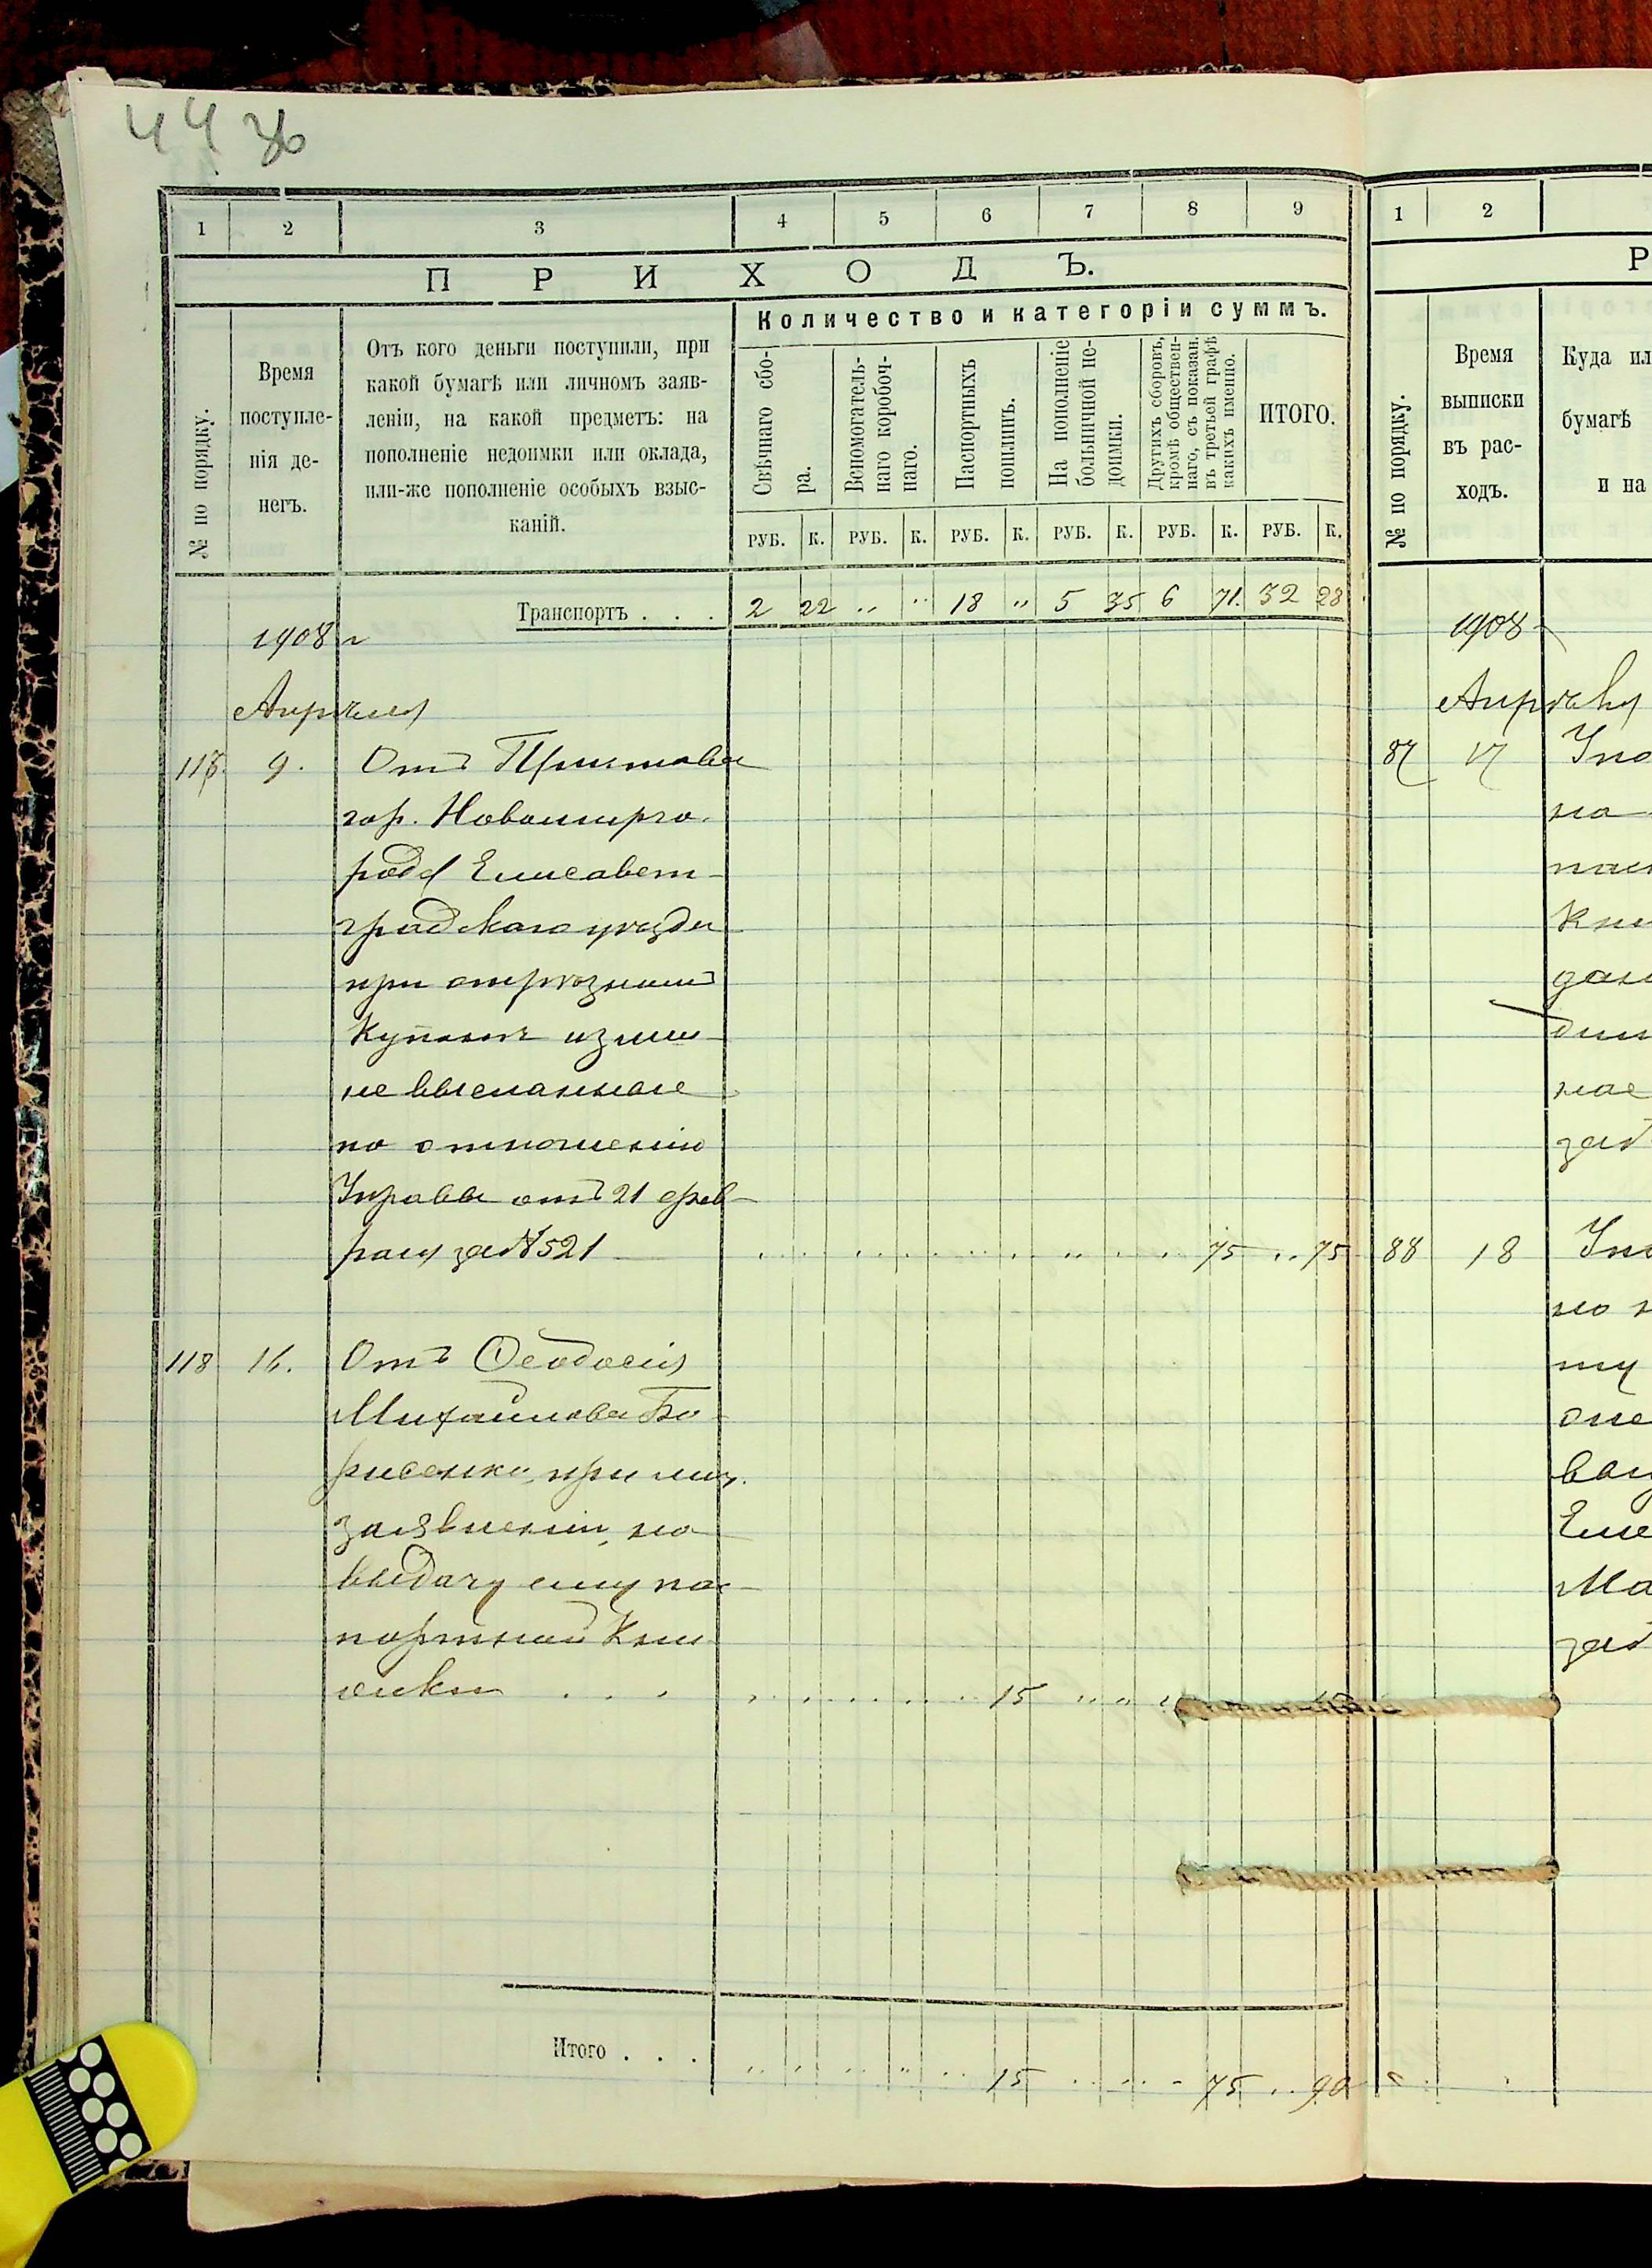 44 зв
1 2 3 4 5 6 7 8 9
ПРИХОДЪ.
№ по порядку.
Время
поступле-
нія де-
негъ.
Отъ кого деньги поступили, при
какой бумагѣ или личномъ заяв-
леніи, на какой предметъ: на
пополненіе недоимки или оклада,
или-же пополненіе особыхъ взыс-
каній.
Количество и категоріи суммъ.
Свѣчнаго сбо-
ра.
Вспомогатель-
наго коробоч-
наго.
Паспортныхъ
пошлинъ.
На пополненіе
больничной не-
доимки.
Другихъ сборовъ,
кромѣ обществен-
наго, съ показан.
въ третьей графѣ
какихъ именно.
ИТОГО.
РУБ. К. РУБ. К. РУБ. К. РУБ. К. РУБ. К. РУБ. К.
Транспортъ . . . 2 22 „ „ 18 „ 5 35 6 71. 32 28
1908 г
Апрѣля
117. 9. Отъ Пристава
гор. Новомирго-
рода Елисавет-
градскаго уѣзда
при отрѣзномъ
купонѣ излиш-
не высланные
по отношенію
Управы отъ 21 фев-
раля за № 521 75 75
118 16. Отъ Ѳеодосія
Михайлова Бо-
рисенко, при лич.
заявленіи, на
выдачу ему пас-
портной Кни-
жки . . . 15
Итого . . . 15 75 90
1 2
Р
№ по порядку.
Время
выписки
въ рас-
ходъ.
Куда ил
бумагѣ
и на
1908
Апрѣля
87 17
на
пас
Кни
зат
88 18
но
му
Ели
Ма